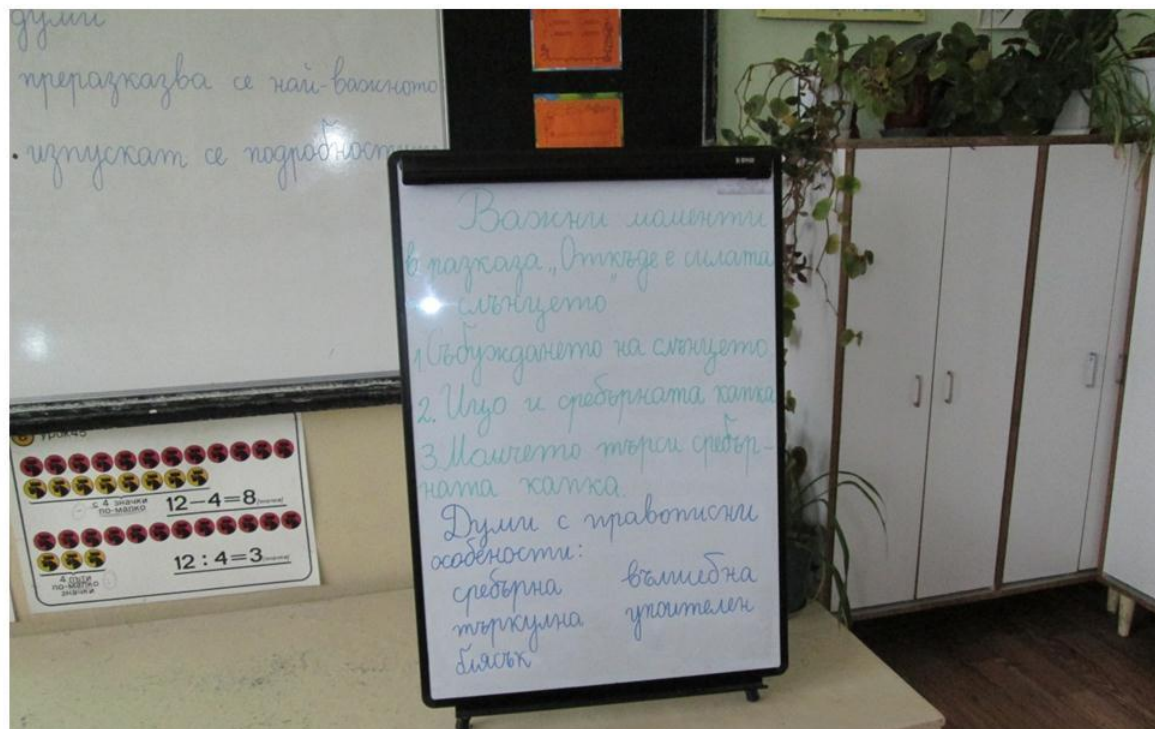 думи
преразказва се най-важното
изпускат се подробностите
Важни моменти
в разказа „Откъде е силата
слънцето"
1. Събуждането на слънцето
2. Ицо и сребърната капка
3. Момчето търси сребър-
ната капка.
Думи с правописни
особености:
сребърна вълшебна
търкулна упоителен
блясък
6 Урок 45
с 4 значки
по-малко
12 – 4 = 8 (значки)
4 пъти
по-малко
значки
12 : 4 = 3 (значки)